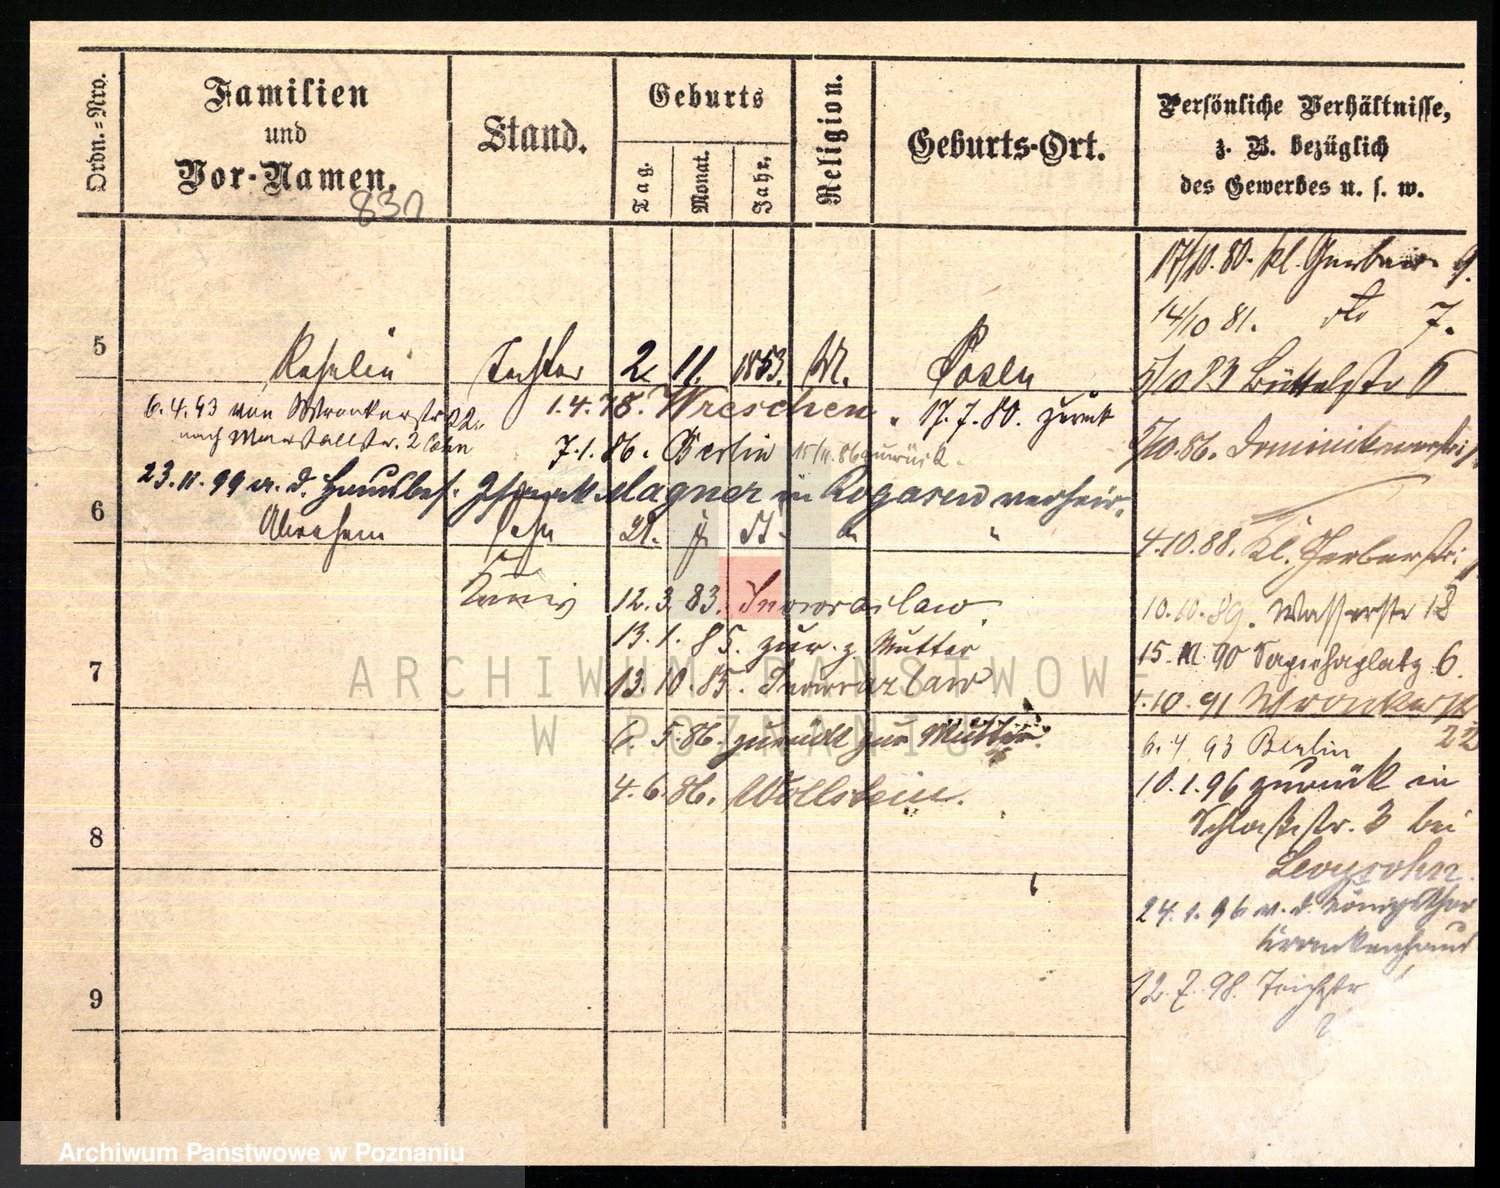 Ordn.=Nro.
Familien
und
Vor-Namen.
Stand.
Geburts
Tag.
Monat.
Jahr.
Religion.
Geburts-Ort.
Persönliche Verhältnisse,
z. B. bezüglich
des Gewerbes u. s. w.
17/10. 80. kl. Gerber 9.
14/10 81. dto 7.
5
Tochter 2. 11. 1853. Posen
5/10 83 Büttelstr
6.4.93 von Wronkerstr 22.
nach Marstallstr. 2 Cohn
1.4.78. Wreschen. 17.7.80. zurück
7.1.86. Berlin 15/11.86 zurück.
5/10.86. Dominikanerstr.
23.11.99 a. d. Hausbes. Magner in Rogasen verheir.
6
Abraham Sohn 21.
4.10.88. Kl. Gerberstr.
12.3.83. Inowrazlaw
10.10.89. Wasserstr 18
13.1.85. zur. z. Mutter
15.11.90 Sapiehaplatz 6.
7
13.10.85. Inowrazlaw
1.10.91 Wronkerstr
22
6.5.86. zurück zur Mutter.
6.4.93 Berlin
4.6.86. Wollstein.
10.1.96 zurück in
8
Schloßstr. 3 bei
Levysohn.
24.1.96 v. d. Königsthor
Krankenhaus
9
12.7.98. Teichstr
ARCHIWUM PAŃSTWOWE
W POZNANIU
Archiwum Państwowe w Poznaniu